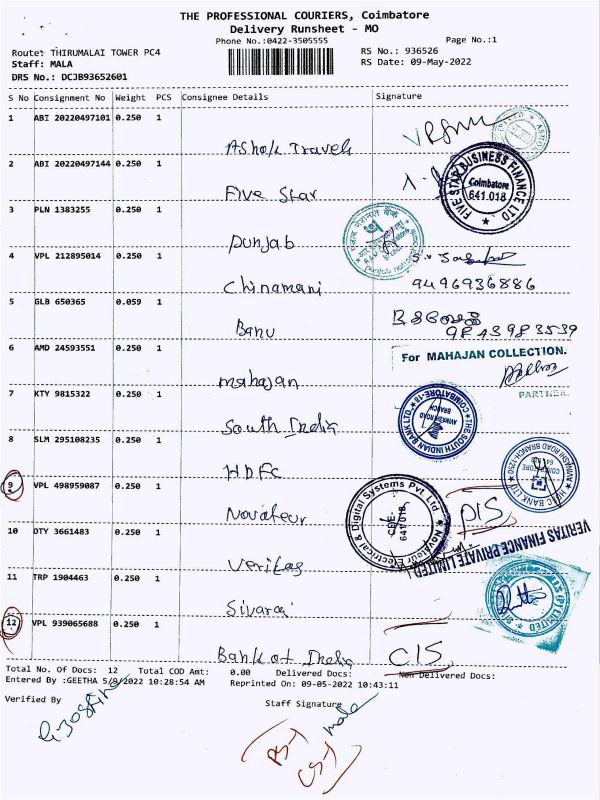 THE PROFESSIONAL COURIERS, Coimbatore
Delivery Runsheet - MO
Phone No.:0422-3505555
Page No.:1
Route: THIRUMALAI TOWER PC4
RS No.: 936526
Staff: MALA
RS Date: 09-May-2022
DRS No.: DCJB93652601
S No Consignment No Weight PCS Consignee Details Signature
1 ABI 20220497101 0.250 1
Ashok Travels
2 ABI 20220497144 0.250 1
Five Star
FIVE STAR BUSINESS FINANCE LTD
Coimbatore
641 018
3 PLN 1383255 0.250 1
punjab
4 VPL 212895014 0.250 1
Chinamani
9496936886
5 GLB 650365 0.059 1
Banu
9843983539
6 AMD 24593551 0.250 1
mahajan
For MAHAJAN COLLECTION.
PARTNER.
7 KTY 9815322 0.250 1
South India
THE SOUTH INDIAN BANK LTD. COIMBATORE-18
AVINASHI ROAD
BRANCH
8 SLM 295108235 0.250 1
HDFC
HDFC BANK LTD
9 VPL 498959087 0.250 1
Novateur
Novateur Electrical & Digital Systems Pvt Ltd
CBE-
641 018
DIS
10 DTY 3661483 0.250 1
Veritas
VERITAS FINANCE PRIVATE LIMITED
11 TRP 1904463 0.250 1
Sivaraj
12 VPL 939065688 0.250 1
Bank of India
CIS
Total No. Of Docs: 12 Total COD Amt: 0.00 Delivered Docs: Non Delivered Docs:
Entered By :GEETHA 5/9/2022 10:28:54 AM Reprinted On: 09-05-2022 10:43:11
Verified By
Staff Signature
mala